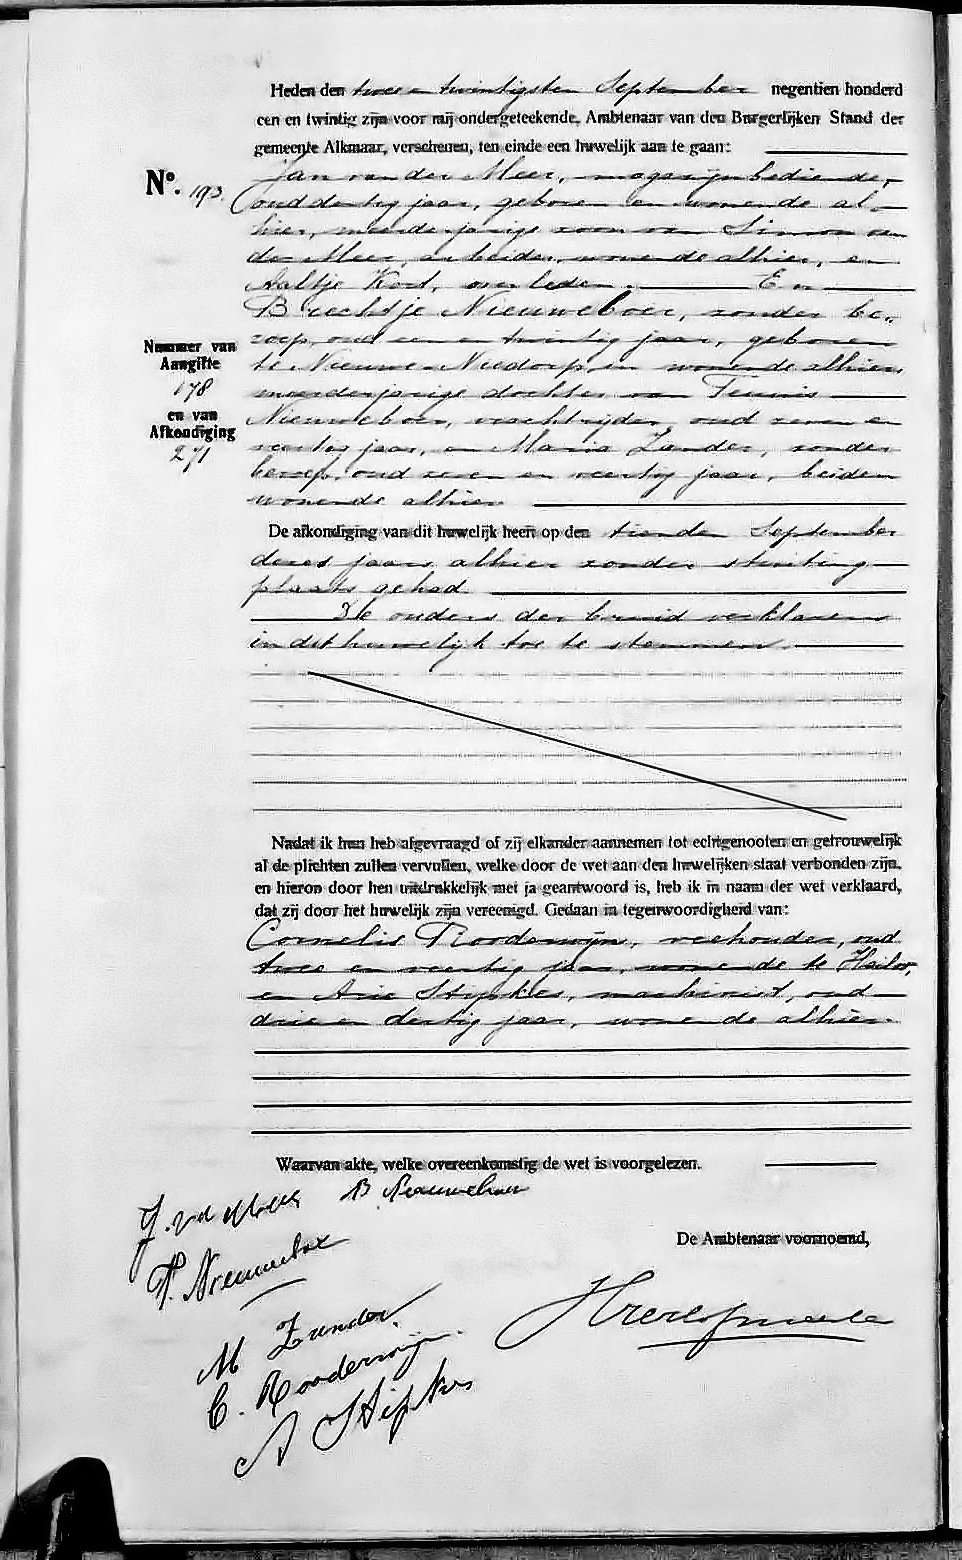 Heden den twee en twintigsten September negentien honderd
een en twintig zijn voor mij ondergeteekende, Ambtenaar van den Burgerlijken Stand der
gemeente Alkmaar, verschenen, ten einde een huwelijk aan te gaan:
Jan van der Meer, magazijnbediende,
No. 193. oud dertig jaar, geboren en wonende al-
hier, meerderjarige zoon van Simon van
der Meer, arbeider, wonende alhier, en
Aaltje Kort, overleden. En
Brechtje Nieuweboer, zonder be-
roep, oud een en twintig jaar, geboren
te Nieuwe-Niedorp, en wonende alhier,
meerderjarige dochter van Teunis
Nieuweboer, vrachtrijder, oud zeven en
veertig jaar, en Maria Zander, zonder
beroep, oud zeven en veertig jaar, beiden
wonende alhier
Nummer van
Aangifte
178
en van
Afkondiging
271
De afkondiging van dit huwelijk heeft op den tienden September
dezes jaars alhier zonder stuiting
plaats gehad.
De ouders der bruid verklaren
in dit huwelijk toe te stemmen.
Nadat ik hun heb afgevraagd of zij elkander aannemen tot echtgenooten en getrouwelijk
al de plichten zullen vervullen, welke door de wet aan den huwelijken staat verbonden zijn,
en hierop door hen uitdrukkelijk met ja geantwoord is, heb ik in naam der wet verklaard,
dat zij door het huwelijk zijn vereenigd. Gedaan in tegenwoordigheid van:
Cornelis Roodewijn, veehouder, oud
twee en veertig jaar, wonende te Heiloo,
en Arie Stipkes, machinist, oud
drie en dertig jaar, wonende alhier.
Waarvan akte, welke overeenkomstig de wet is voorgelezen.
J. v d Meer B Nieuweboer
De Ambtenaar voornoemd,
T. Nieuweboer
M Zander
C. Roodewijn
A Stipkes